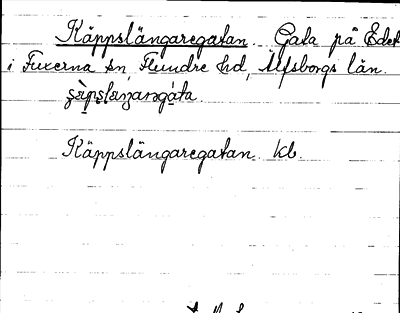 Käppslängaregatan. Gata på Edet
i Fuxerna sn, Flundre hd, Älfsborgs län.
Käppslängaregatan. kb.